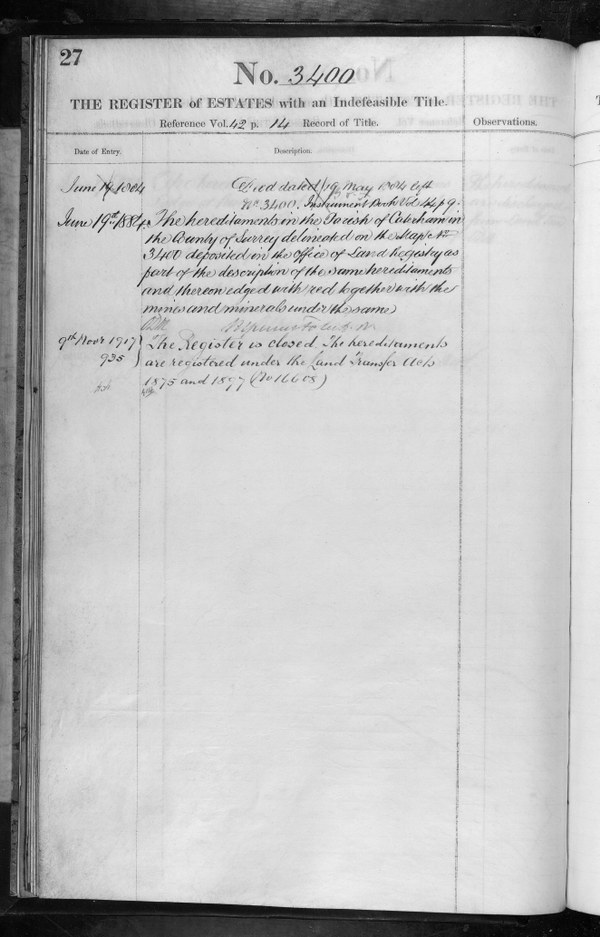 27
No. 3400
THE REGISTER of ESTATES with an Indefeasible Title.
Reference Vol. 42 p. 14 Record of Title.
Observations.
Date of Entry.
Description.
June 19 1884
Deed dated 19 May 1884 left
No 3400. Instrument Book Vol 44 p 9.
June 19th 1884.
The hereditaments in the Parish of Caterham in
the County of Surrey delineated on the Map No
3400 deposited in the Office of Land Registry as
part of the description of the same hereditaments
and thereon edged with red together with the
mines and minerals under the same
9th Novr 1917
The Register is closed. The hereditaments
935
are registered under the Land Transfer Acts
1875 and 1897 (No 16608)